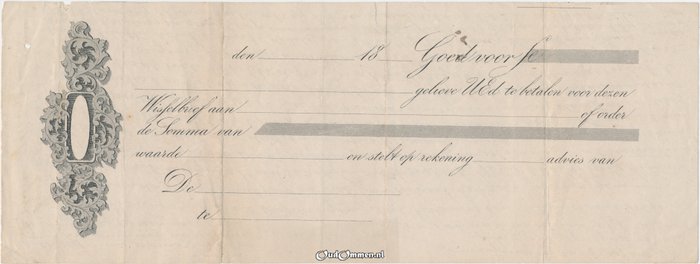 den 18 Goed voor f
gelieve UEd. te betalen voor dezen
Wisselbrief aan of order
de Somma van
waarde en stelt op rekening advies van
De
te
OudOmmen.nl